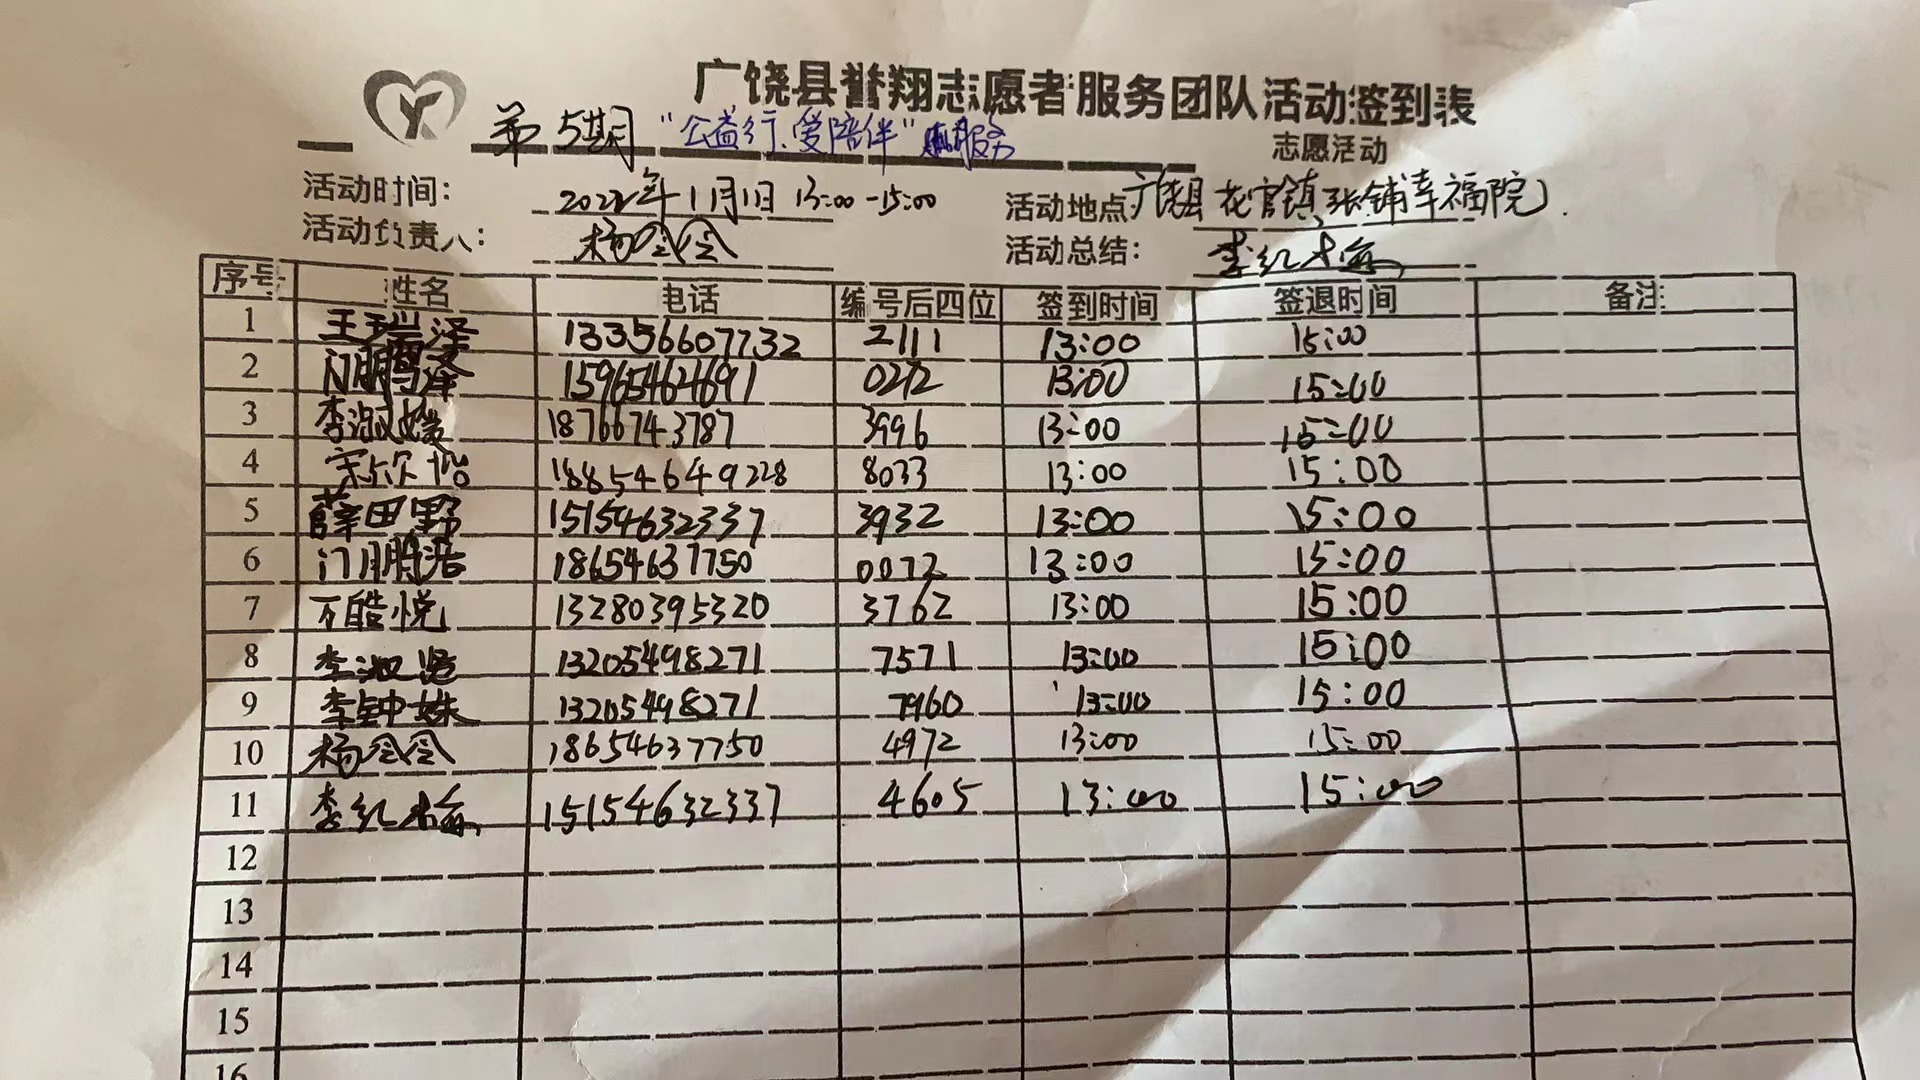 广饶县誉翔志愿者服务团队活动签到表
第5期 "公益行、爱陪伴" 服务 志愿活动
活动时间: 2022年1月1日 13:00-15:00 活动地点 广饶县花官镇张铺幸福院
活动负责人: 杨令令 活动总结: 李红梅
序号 姓名 电话 编号后四位 签到时间 签退时间 备注
1 王瑞泽 13356607732 2111 13:00 15:00
2 门鹏泽 15965464691 0212 13:00 15:00
3 李淑媛 18766743787 3996 13:00 15:00
4 宋尔怡 18854649228 8033 13:00 15:00
5 薛田野 15154632337 3932 13:00 15:00
6 门鹏浩 18654637750 0072 13:00 15:00
7 皓悦 13280395320 3762 13:00 15:00
8 李淑贤 13205498271 7571 13:00 15:00
9 李钟姝 13205498271 7960 13:00 15:00
10 杨令令 18654637750 4972 13:00 15:00
11 李红梅 15154632337 4605 13:00 15:00
12
13
14
15
16